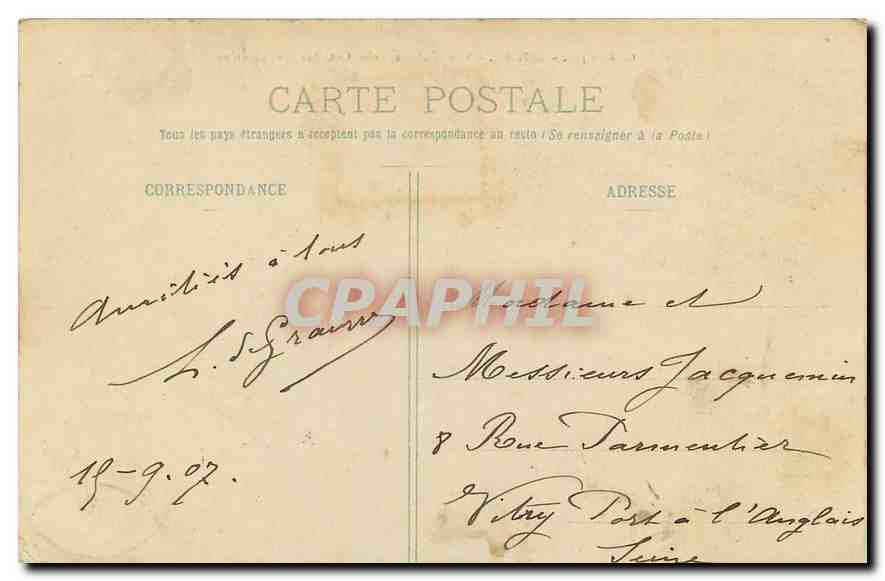 CARTE POSTALE
Tous les pays étrangers n'acceptent pas la correspondance au recto (Se renseigner à la Poste)
CORRESPONDANCE
ADRESSE
Amitiés à tous
L. de
15-9.07.
CPAPHIL
Madame et
Messieurs Jacquemin
8 Rue Parmentier
Vitry Port à l'Anglais
Seine